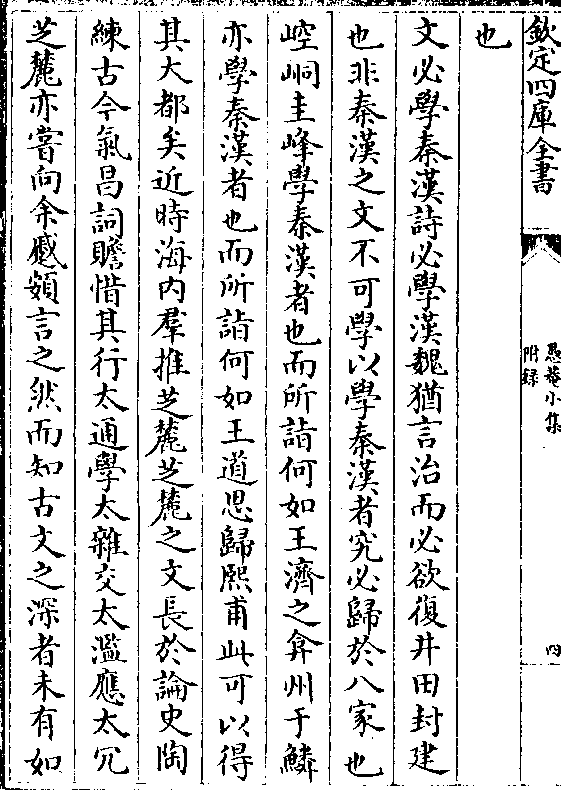 欽定四庫全書
愚菴小集
附録
四
也
文必學秦漢詩必學漢魏猶言治而必欲復井田封建
也非秦漢之文不可學以學秦漢者究必歸於八家也
崆峒圭峰學秦漢者也而所詣何如王濟之弇州于鱗
亦學秦漢者也而所詣何如王道思歸熙甫此可以得
其大都矣近時海内羣推芝麓芝麓之文長於論史陶
練古今氣昌詞贍惜其行太通學太雜交太濫應太冗
芝麓亦嘗向余慼頞言之然而知古文之深者未有如